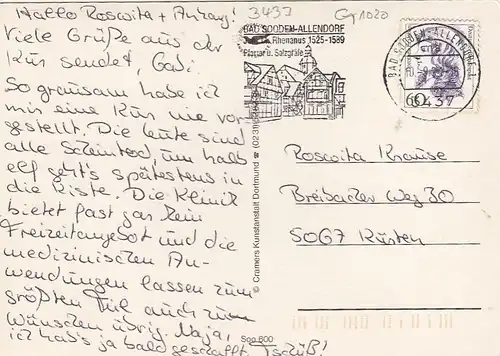 Hallo Roswita + Anhang!
Viele Grüße aus der
Kur sendet, Gabi.
So grausam habe ich
mir eine Kur nie vor-
gestellt. Die Leute sind
alle scheintod, um halb
elf geht's spätestens in
die Kiste. Die Klinik
bietet fast gar kein
Freizeitangebot und die
medizinischen An-
wendungen lassen zum
größten Teil auch zum
Wünschen übrig. Naja,
ich hab's ja bald geschafft. Tschüß!
© Cramers Kunstanstalt Dortmund
Soo 600
3437
G 1020
BAD SOODEN-ALLENDORF
Rhenanus 1525-1589
Pfarrer u. Salzgräfe
BAD SOODEN-ALLENDORF
6437
Roswita Krause
Breibacher Weg 30
5067 Kürten